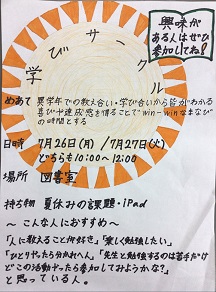 興味が
ある人はぜひ
参加してね!
学びサークル
めあて 異学年での教え合い・学び合いから皆がわかる
喜びや達成感を得ることでwin-winなまなび
の時間とする
日時 7月26日(月)/7月27日(火)
どちらも10:00〜12:00
場所 図書室
持ち物 夏休みの課題・iPad
〜こんな人におすすめ〜
「人に教えることが好き」「楽しく勉強したい」
「ひとりやったらわかれへん」「先生と勉強するのは苦手だけ
どこの活動やったら参加してみようかな?」
と思っている人。